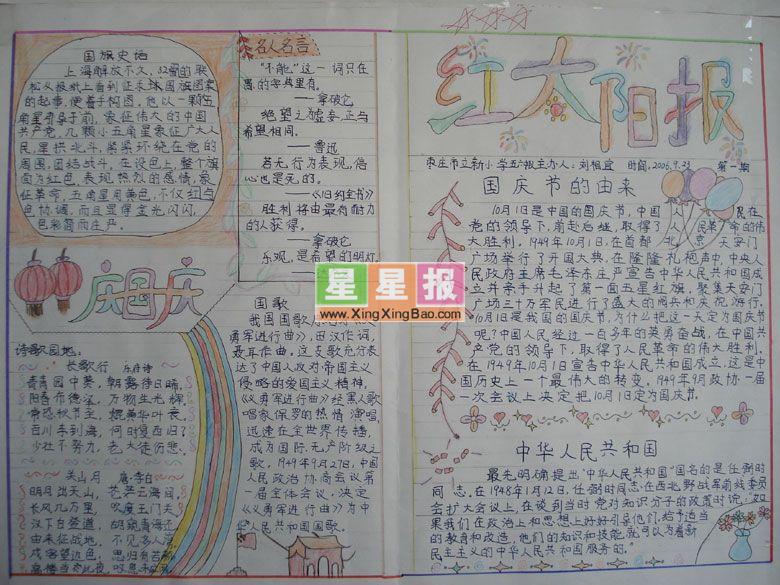 国旗史话
上海解放不久,32岁的联
松从报纸上看到征求国旗图案
的起事,便着手构图,他以一颗五
角星引导于前,象征伟大的中国
共产党,几颗小五角星象征广大人
民,星拱北斗,紧紧环绕在党的
周围,团结战斗,在设色上,整个旗
面为红色,表现热烈的感情,象
征革命,五角星用黄色,不仅红与
色协调,而且显得金光闪闪,
色彩简雨庄严
名人名言
“不能”这一词只在
愚的字典里有。
——拿破仑
绝望之为虚妄,正与
希望相同。
——鲁迅
若无行为表现,信
心也是死的。
——《旧约全书》
胜利将由最有耐力
的人获得。
——拿破仑
乐观,是希望的明灯
庆国庆
诗歌园地:
长歌行 乐府诗
青青园中葵,朝露待日晞,
阳春布德泽,万物生光辉,
常恐秋节至,焜黄华叶衰,
百川东到海,何时复西归?
少壮不努力,老大徒伤悲。
关山月 唐·李白
明月出天山,苍茫云海间,
长风几万里,吹度玉门关,
汉下白登道,胡窥青海湾
由来征战地,不见多人
戍客望边色,思归有苦颜
高楼当此夜,叹息未
国歌
我国国歌
勇军进行曲》,田汉作词,
聂耳作曲。这支歌充分表
达了中国人权对帝国主义
侵略的爱国主义精神,
《义勇军进行曲》经黑人歌
唱家保罗的热情演唱,
迅速在全世界传播,
成为国际无产阶级之
歌,1949年9月27日,中国
人民政治协商会议第
一届全体会议,决定
《义勇军进行曲》为中
华人民共和国国歌。
星星报
www.XingXingBao.com
红太阳报
枣庄市立新小学五 主办人:刘相宜 时间:2006.9.23 第一期
国庆节的由来
10月1日是中国的国庆节,中国人 在
党的领导下,前赴后继,取得了人民革命的伟
大胜利。1949年10月1日,在首都北京天安门
广场举行了开国大典,在隆隆礼炮声中,中央人
民政府主席毛泽东庄严宣告中华人民共和国成
立并亲手升起了第一面五星红旗,聚集天安门
广场三十万军民进行了盛大的阅兵和庆祝游行。
10月1日是我国的国庆节,为什么把这一天定为国庆节
呢?中国人民经过一百多年的英勇奋战,在中国共
产党的领导下,取得了人民革命的伟大胜利。
在1949年10月1日宣告中华人民共和国成立,这是中
国历史上一个最伟大的转变,1949年9月政协一届
一次会议上决定把10月1日定为国庆节。
中华人民共和国
最先明确提出“中华人民共和国”国名的是任弼时
同志。在1948年1月12日,任弼时同志在西北野战军前线委员
会扩大会议上,在谈到当时党对知识分子的政策时说:如
果我们在政治上和思想上好好引导他们,给予适当
的教育和改造,他们的知识和技能,就可以为着新
民主主义的中华人民共和国服务的。”